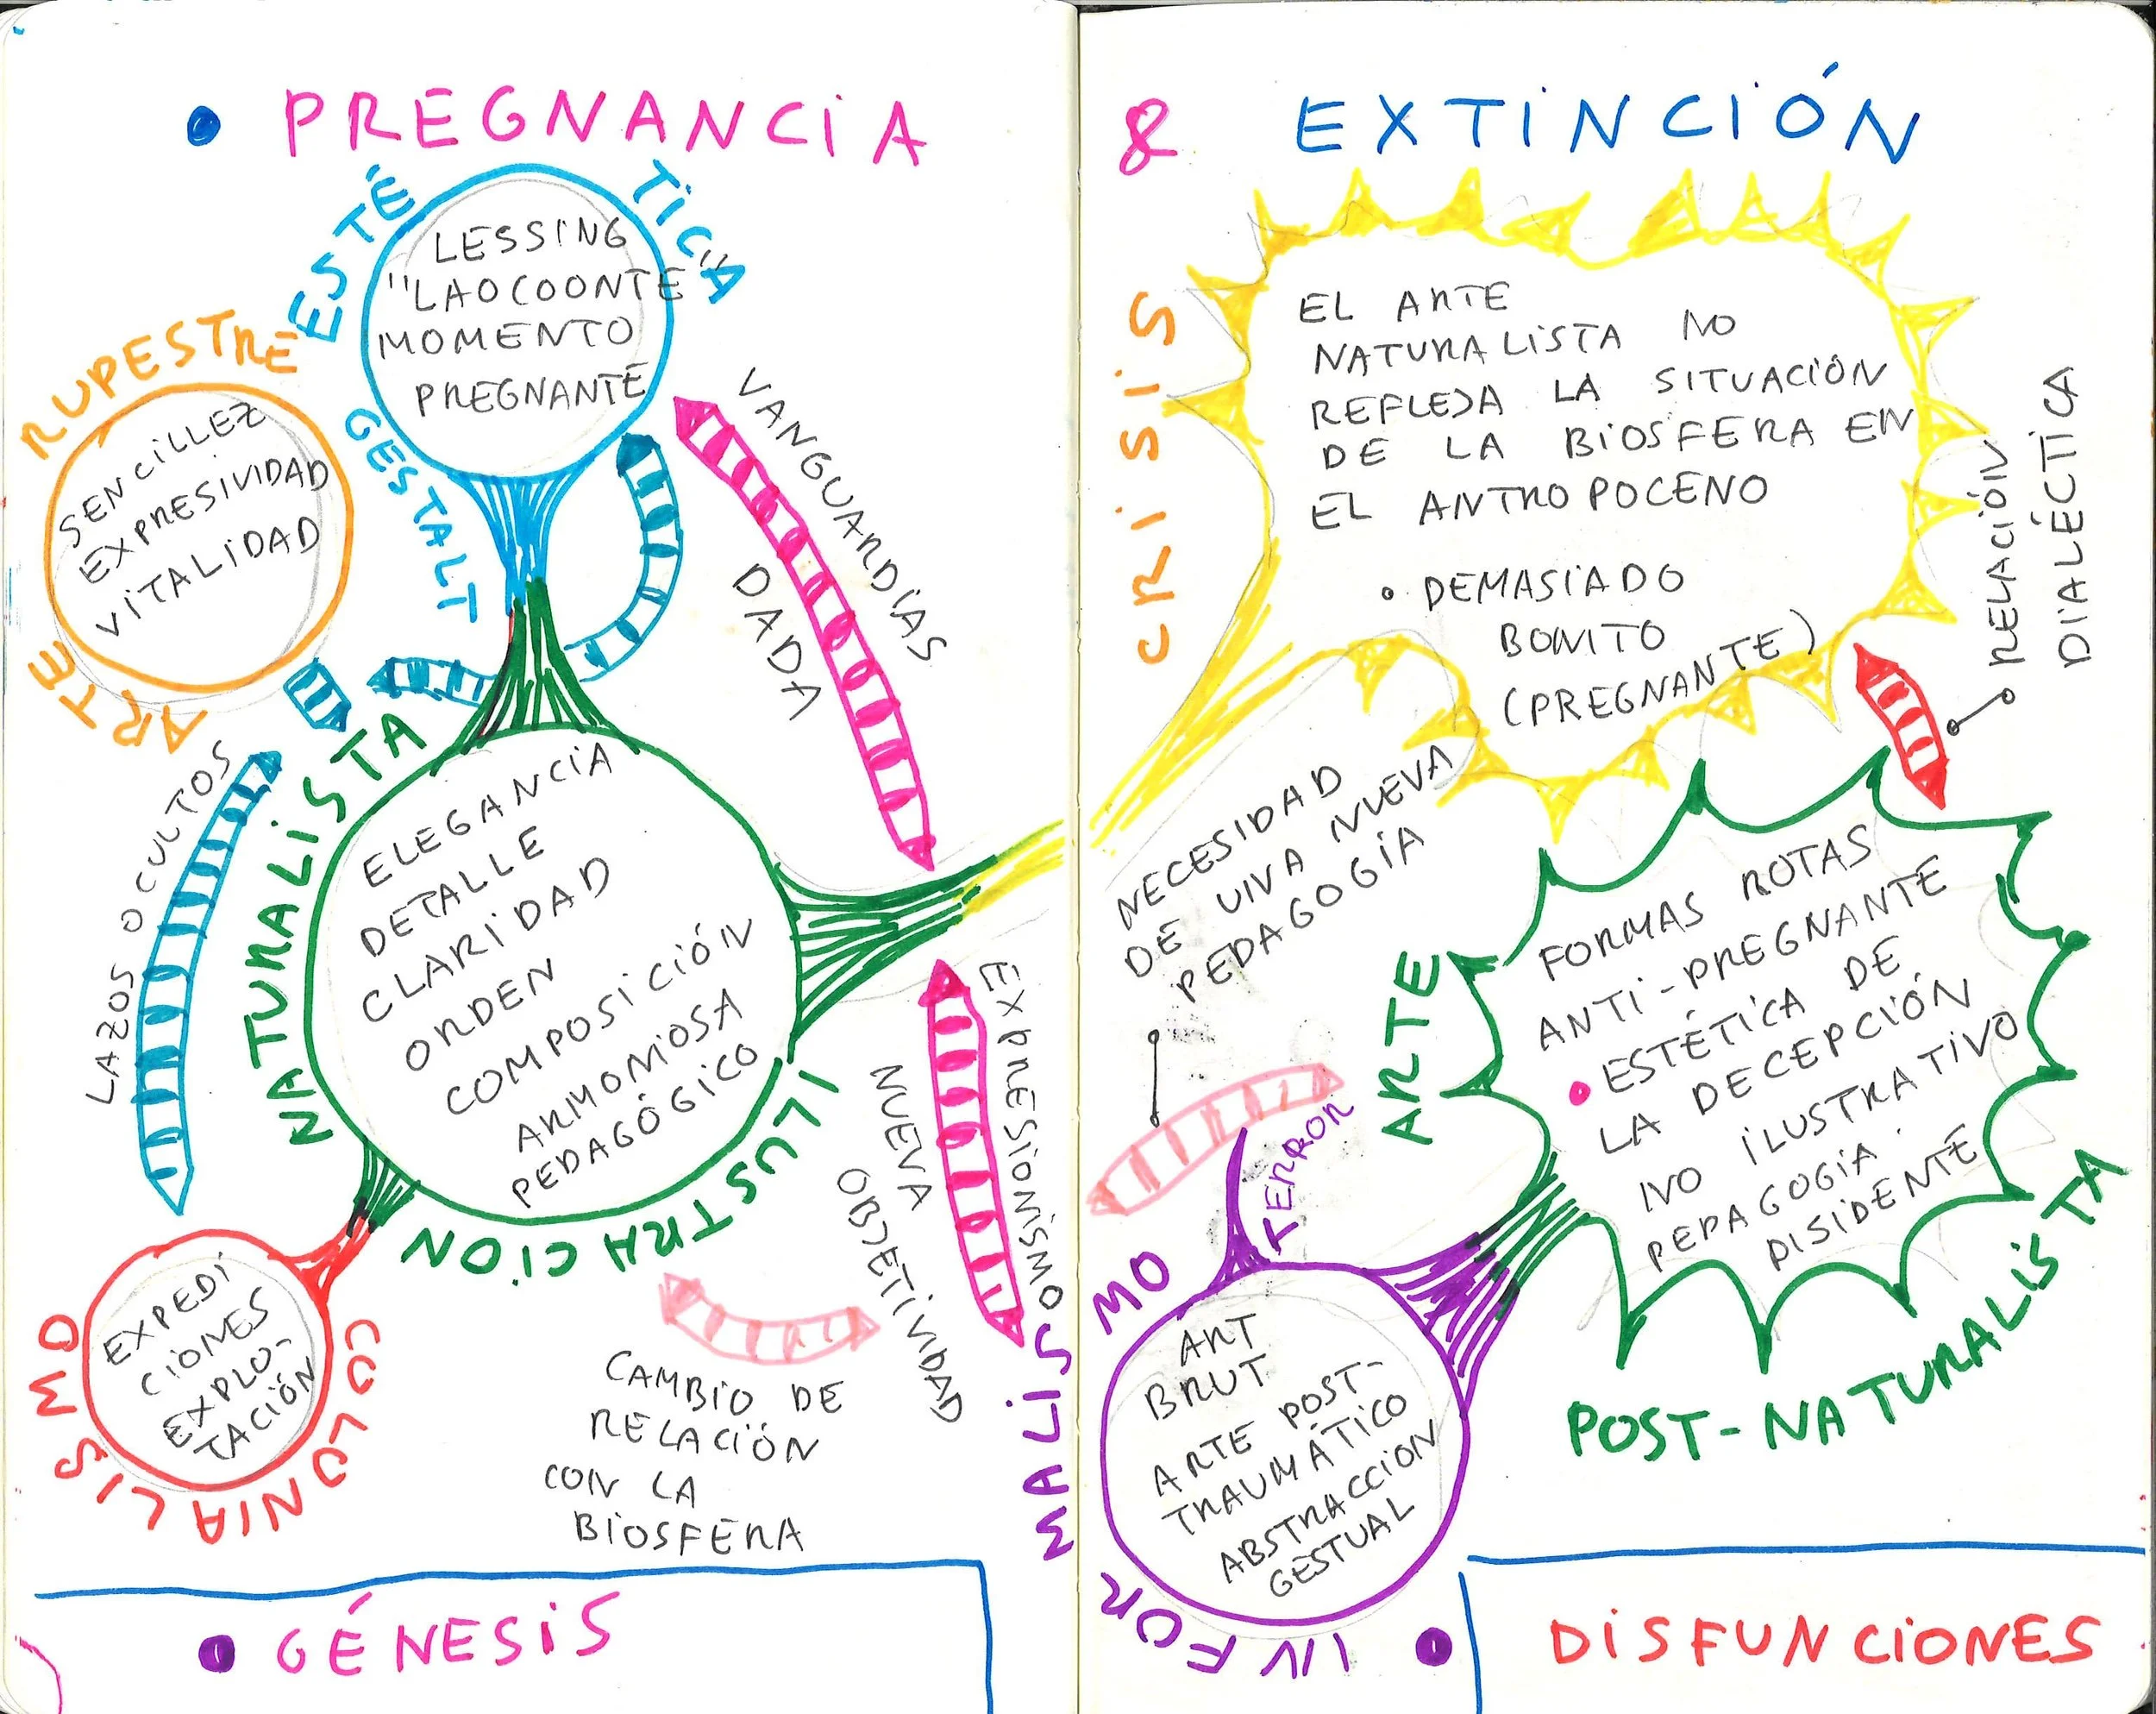 PREGNANCIA & EXTINCIÓN
ESTÉTICA
GESTALT
LESSING
"LAOCOONTE"
MOMENTO
PREGNANTE
ARTE RUPESTRE
SENCILLEZ
EXPRESIVIDAD
VITALIDAD
LAZOS OCULTOS
VANGUARDIAS
DADA
ILUSTRACIÓN NATURALISTA
ELEGANCIA
DETALLE
CLARIDAD
ORDEN
COMPOSICIÓN
ARMONIOSA
PEDAGÓGICO
EXPRESIONISMO
NUEVA
OBJETIVIDAD
COLONIALISMO
EXPEDI
CIONES
EXPLO-
TACIÓN
CAMBIO DE
RELACIÓN
CON LA
BIOSFERA
GÉNESIS
CRISIS
EL ARTE
NATURALISTA NO
REFLEJA LA SITUACIÓN
DE LA BIOSFERA EN
EL ANTROPOCENO
• DEMASIADO
BONITO
(PREGNANTE)
RELACIÓN
DIALÉCTICA
NECESIDAD
DE UNA NUEVA
PEDAGOGÍA
ARTE
POST-NATURALISTA
FORMAS ROTAS
ANTI-PREGNANTE
• ESTÉTICA DE
LA DECEPCIÓN
NO ILUSTRATIVO
PEDAGOGIA
DISIDENTE
TERROR
INFORMALISMO
ART
BRUT
ARTE POST-
TRAUMÁTICO
ABSTRACCION
GESTUAL
DISFUNCIONES